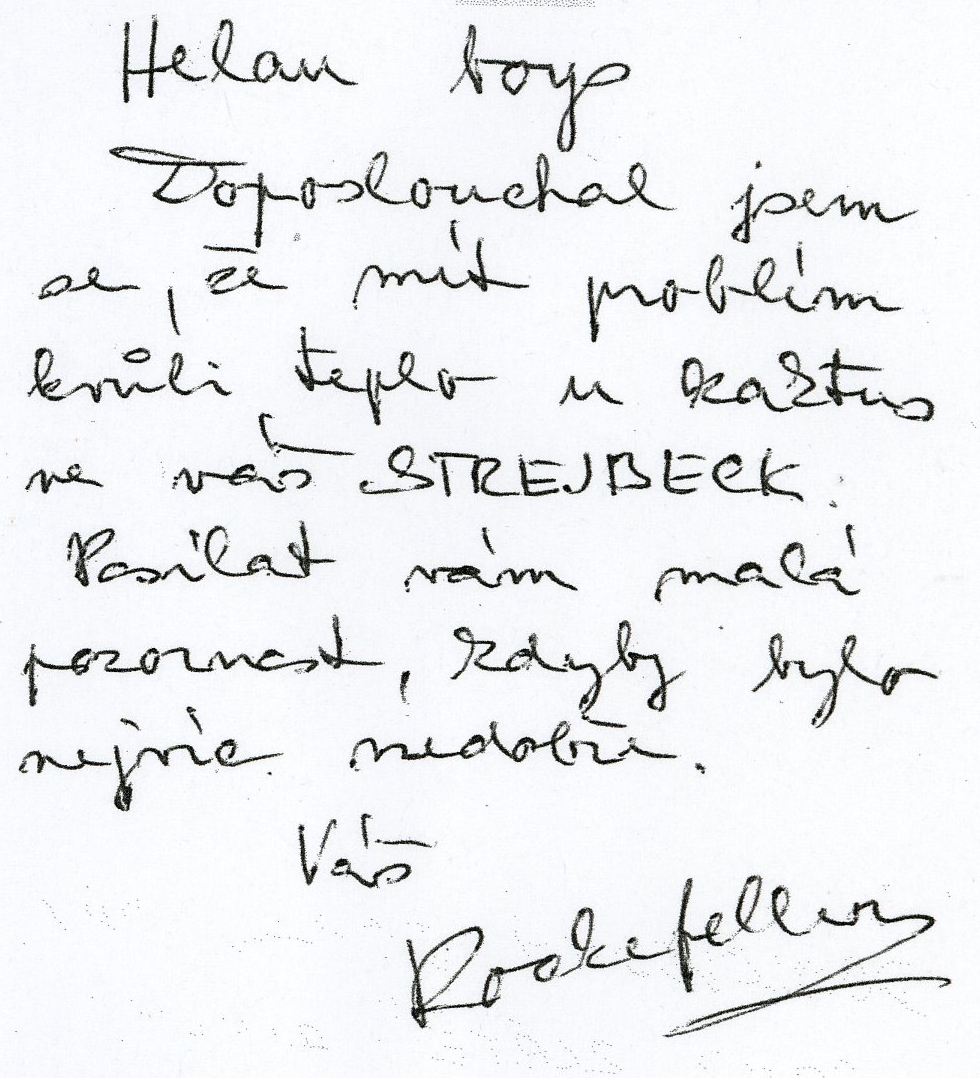 Helau boys
Doposlouchal jsem
se, že mít problém
kvůli teplo u kaktus
ve váš STREJBECK.
Posílat vám malá
pozornost, kdyby bylo
nejvíc nedobře.
Váš
Rockefeller